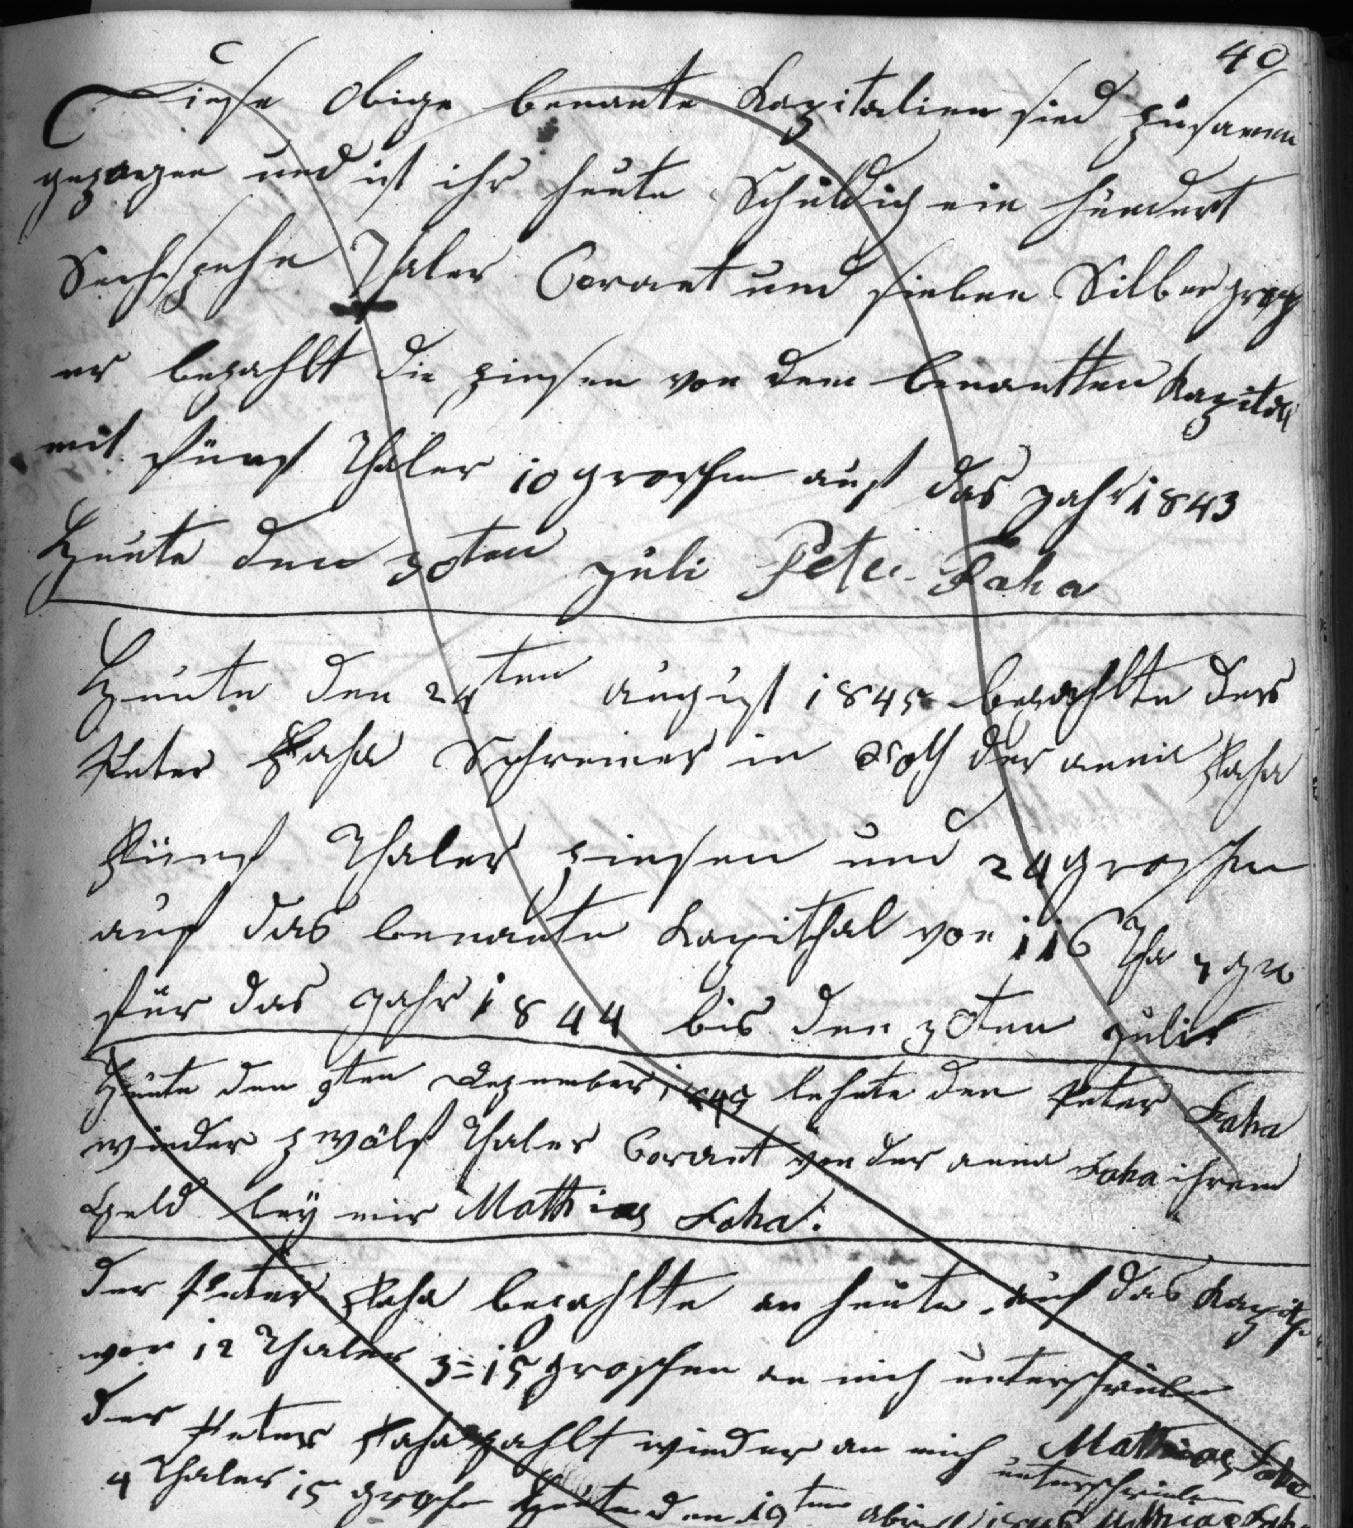 40
Diese Obige benante Kapitalien sind zusamen
gezogen und ist ihr heute Schuldich ein hundert
Sechszehn Thaler Corant und sieben Silbergrosch
er bezahlt die zinsen von dem benantten Kapital
mit fünf Thaler 10 groschen auf das Jahr 1843
Heute den 30ten Juli Peter Faha
Heunte den 24ten august 1845 bezahlte der
Peter Faha Schreiner in Roth der anna Faha
Fünf Thaler zinsen und 24 groschen
auf das benante Kapithal von 116 Tha 7 gro
für das Jahr 1844 bis den 30ten Juli
Heunte den 9ten Dezember lehnte den Peter Faha
wieder zwölf Thaler Corant von der anna Faha ihrem
Geld bey mir Mathias Faha.
der Peter Faha bezahlte an heute auf das Kapitha
von 12 Thaler 3=15 groschen an mich unterschrieben
Mathias Faha
der Peter Faha zahlt wieder an mich unterschrieben
4 Thaler 15 grosch Heute den 19ten Mathias Faha